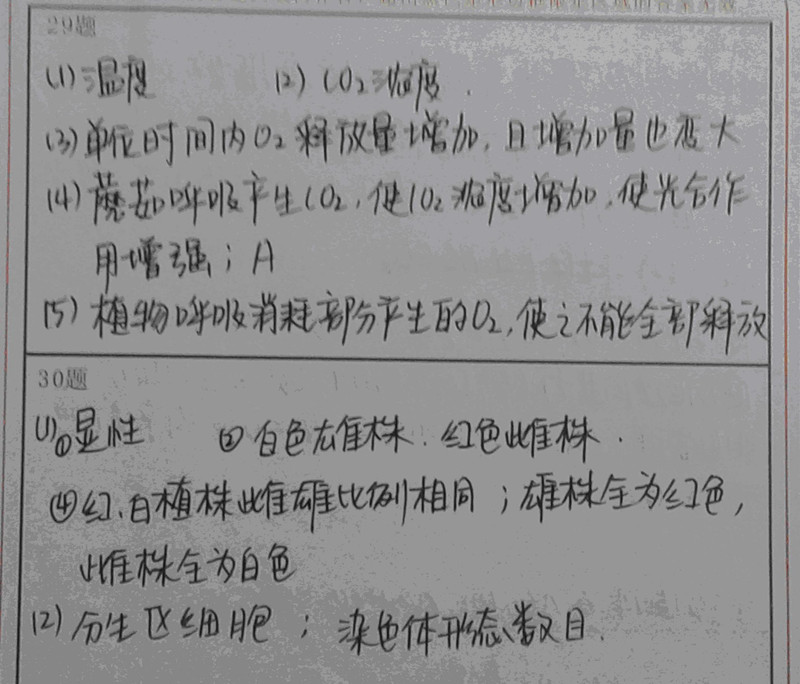 29题
(1) 温度 (2) CO₂浓度.
(3) 单位时间内O₂释放量增加,且增加量也变大
(4) 蘑菇呼吸产生CO₂,使CO₂浓度增加,使光合作
用增强;A
(5) 植物呼吸消耗部分产生的O₂,使之不能全部释放
30题
(1)①显性 ②白色雄株.红色雌株.
④红、白植株雌雄比例相同;雄株全为红色,
雌株全为白色
(2) 分生区细胞;染色体形态、数目.